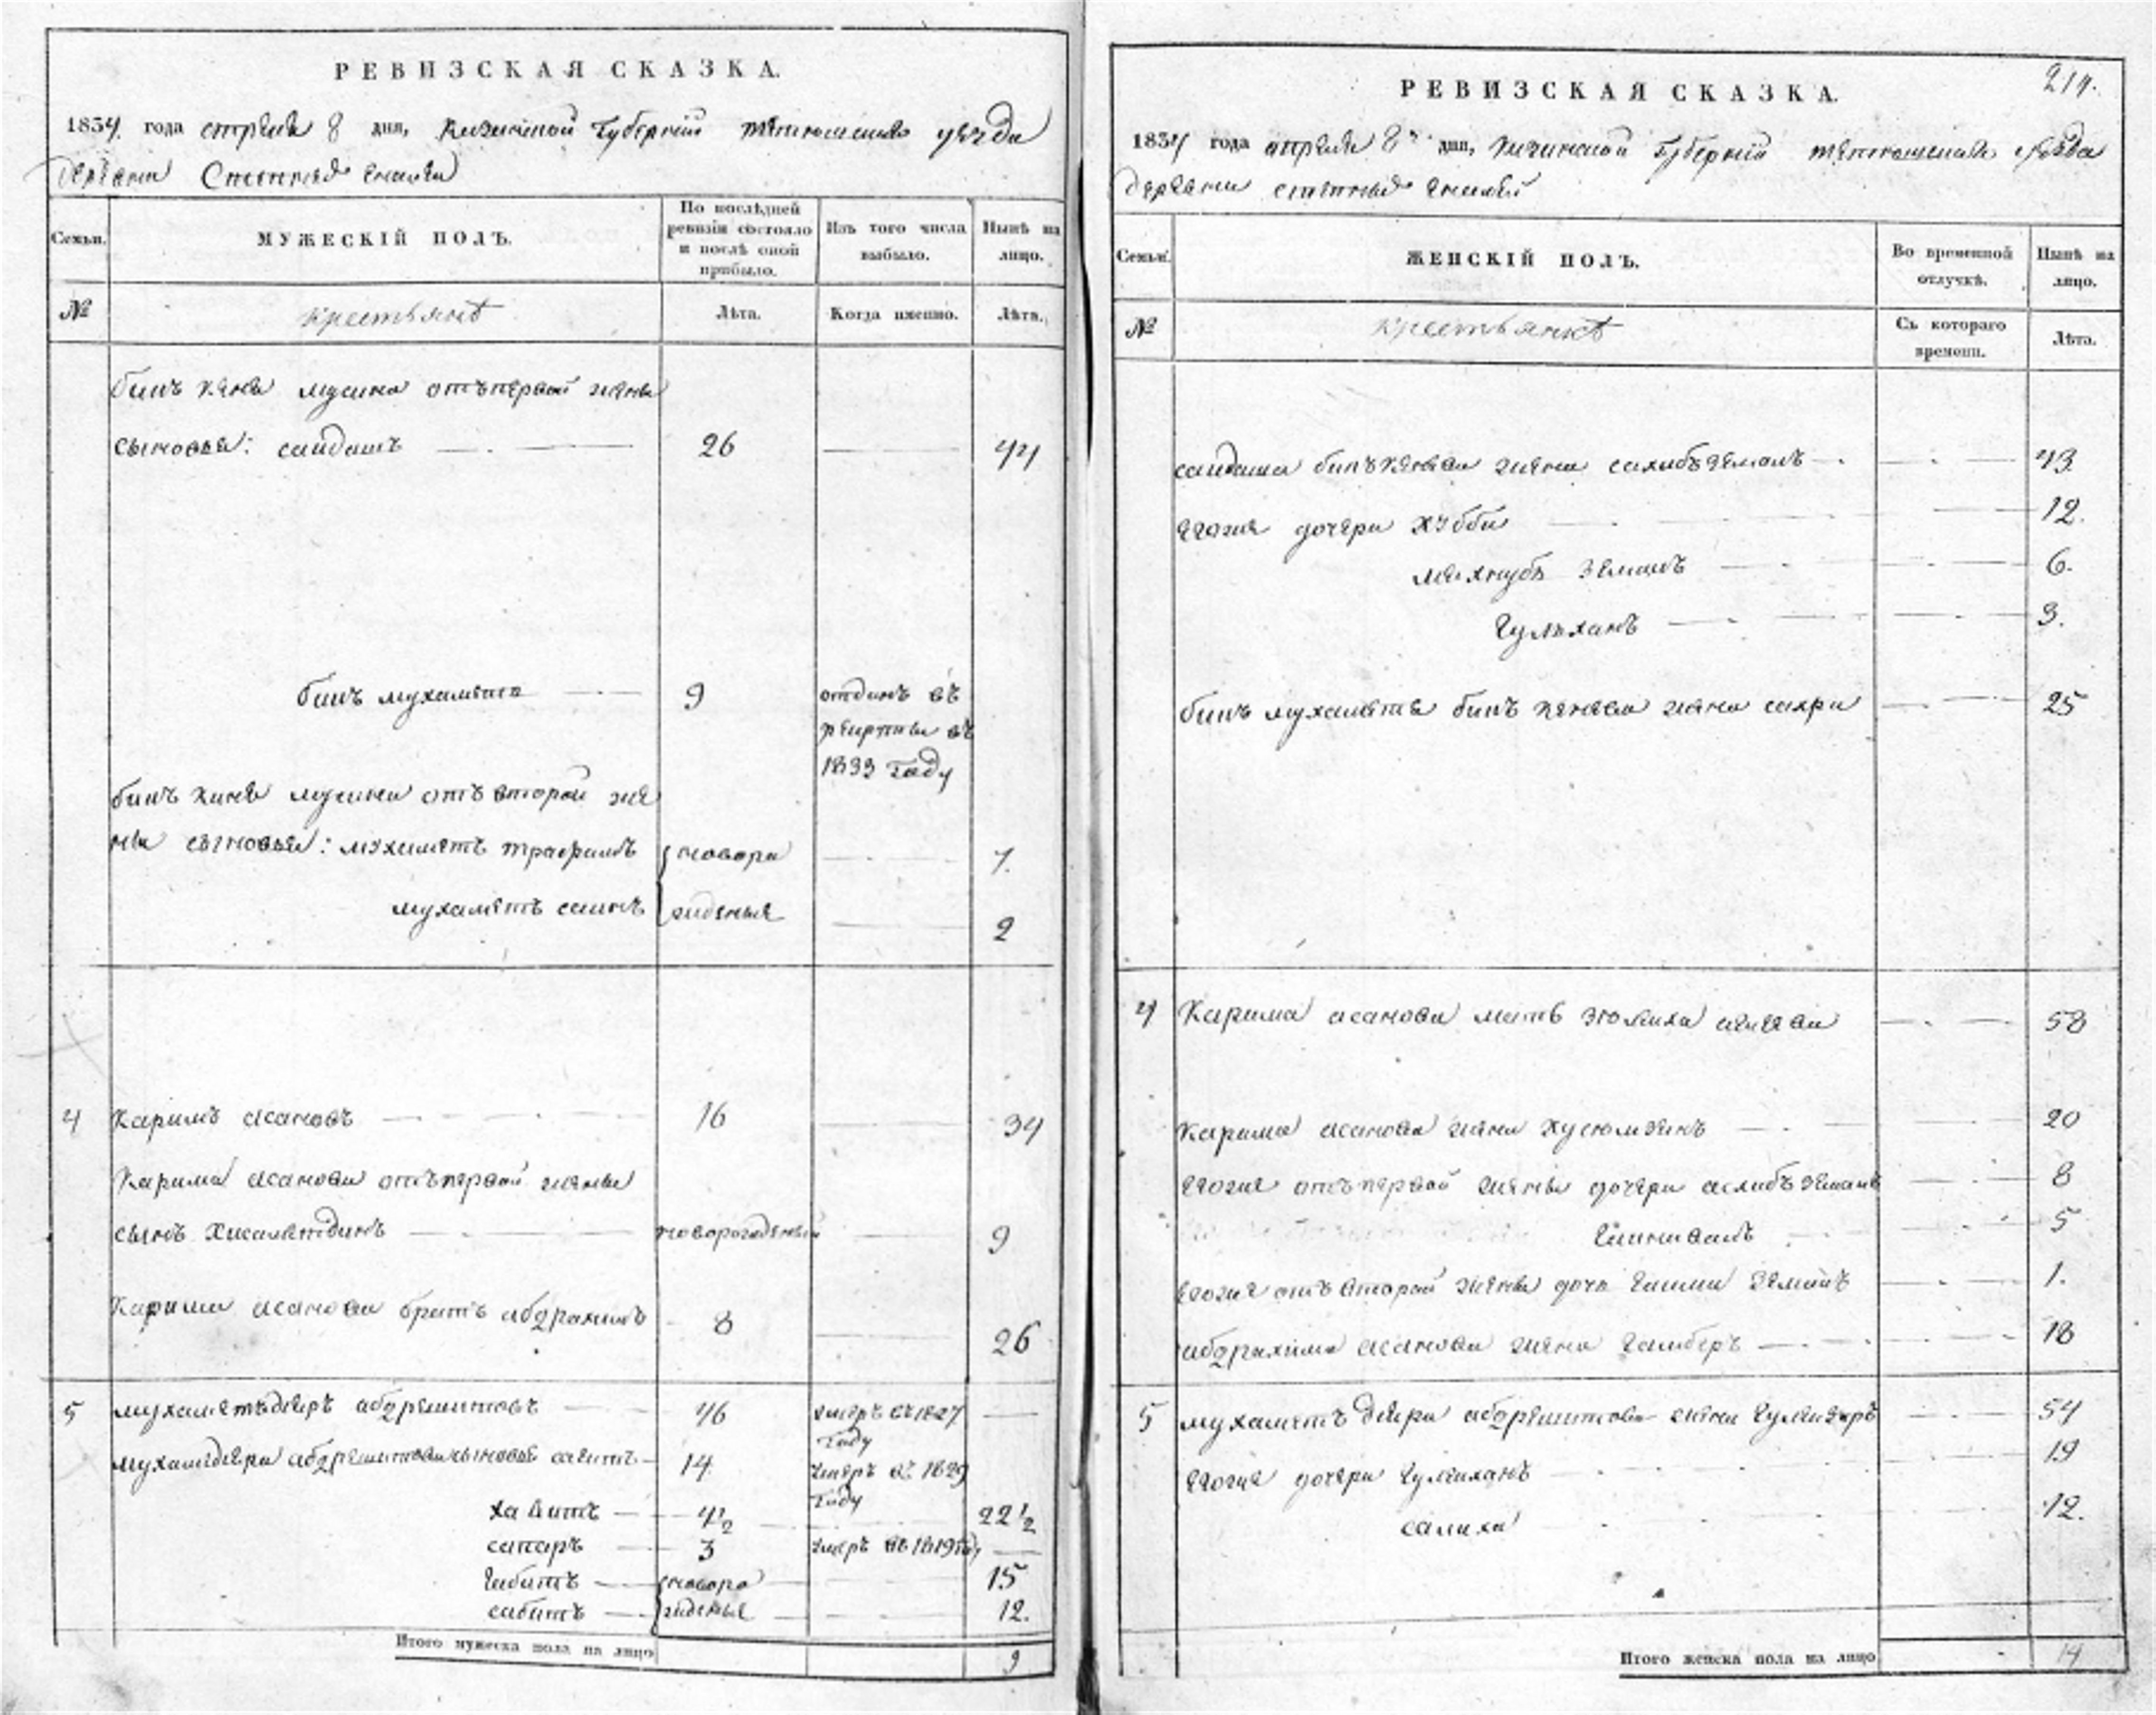 РЕВИЗСКАЯ СКАЗКА.
1834 года апреля 8 дня, Казанской Губернии тетюшскаго уезда
деревни Степная еналей
Семьи. МУЖЕСКІЙ ПОЛЪ. По послѣдней ревизіи состояло и послѣ оной прибыло. Изъ того числа выбыло. Нынѣ на лицо.
№ крестьянѣ Лѣта. Когда именно. Лѣта.
бикъ кени мусина отъ первой жены
сыновья: саидашъ 26 44
бикъ мухаметъ 9 отданъ въ
рекруты въ
1833 году
бикъ кини мусина отъ второй же
ны сыновья: мухаметъ новоро 7.
мухаметъ жденые 2
4 Каримъ асановъ 16 34
Карима асанова отъ первой жены
сынъ хисаметдинъ новорожденный 9
Карима асанова братъ абдрахимъ 8 26
5 мухаметъдияръ абдрешитовъ 46 умеръ въ 1827
году
мухамедияра абдрешитова сыновья сеитъ 14 умеръ въ 1829
году
хавитъ 4½ 22½
сапаръ 3 умеръ въ 1819 году
габитъ новоро 15
сабитъ жденые 12.
Итого мужеска пола на лицо 9
214.
РЕВИЗСКАЯ СКАЗКА.
1834 года апреля 8 дня, Казанской Губернии тетюшскаго уезда
деревни степная еналей
Семьи. ЖЕНСКІЙ ПОЛЪ. Во временной отлучкѣ. Нынѣ на лицо.
№ крестьянкѣ Съ котораго времени. Лѣта.
саидаша бикъкенева жена сахибъземалъ 43.
егоже дочери хубби 12.
махкубъ земалъ 6.
Гульханъ 3.
бикъ мухамета бикъ кенева жена сахри 25
4 Карима асанова мать зюлиха 58
Карима асанова жена хусюмзянъ 20
егоже отъ первой жены дочери аслибъземалъ 8
5
егоже отъ второй жены дочь земалъ 1.
абдрахима асанова жена гамберъ 18
5 мухаметъ дияра абдрешитова жена 54
егоже дочери Гульжиханъ 19
салиха 12.
Итого женска пола на лицо 14